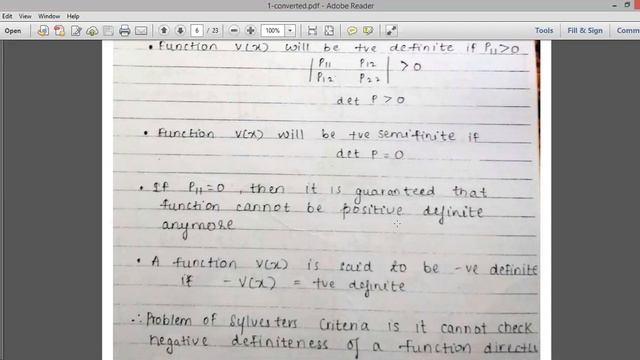 1-converted.pdf - Adobe Reader
6 / 23
100%
Tools
Fill & Sign
Comment
• Function V(x) will be +ve definite if P11>0
| P11 P12 |
| P12 P22 | >0
det P > 0
• Function V(x) will be +ve semifinite if
det P = 0
• If P11=0, then it is guaranteed that
function cannot be positive definite
anymore
• A function V(x) is said to be -ve definite
if - V(x) = +ve definite
∴ Problem of Sylvesters Criteria is it cannot check
negative definiteness of a function directly